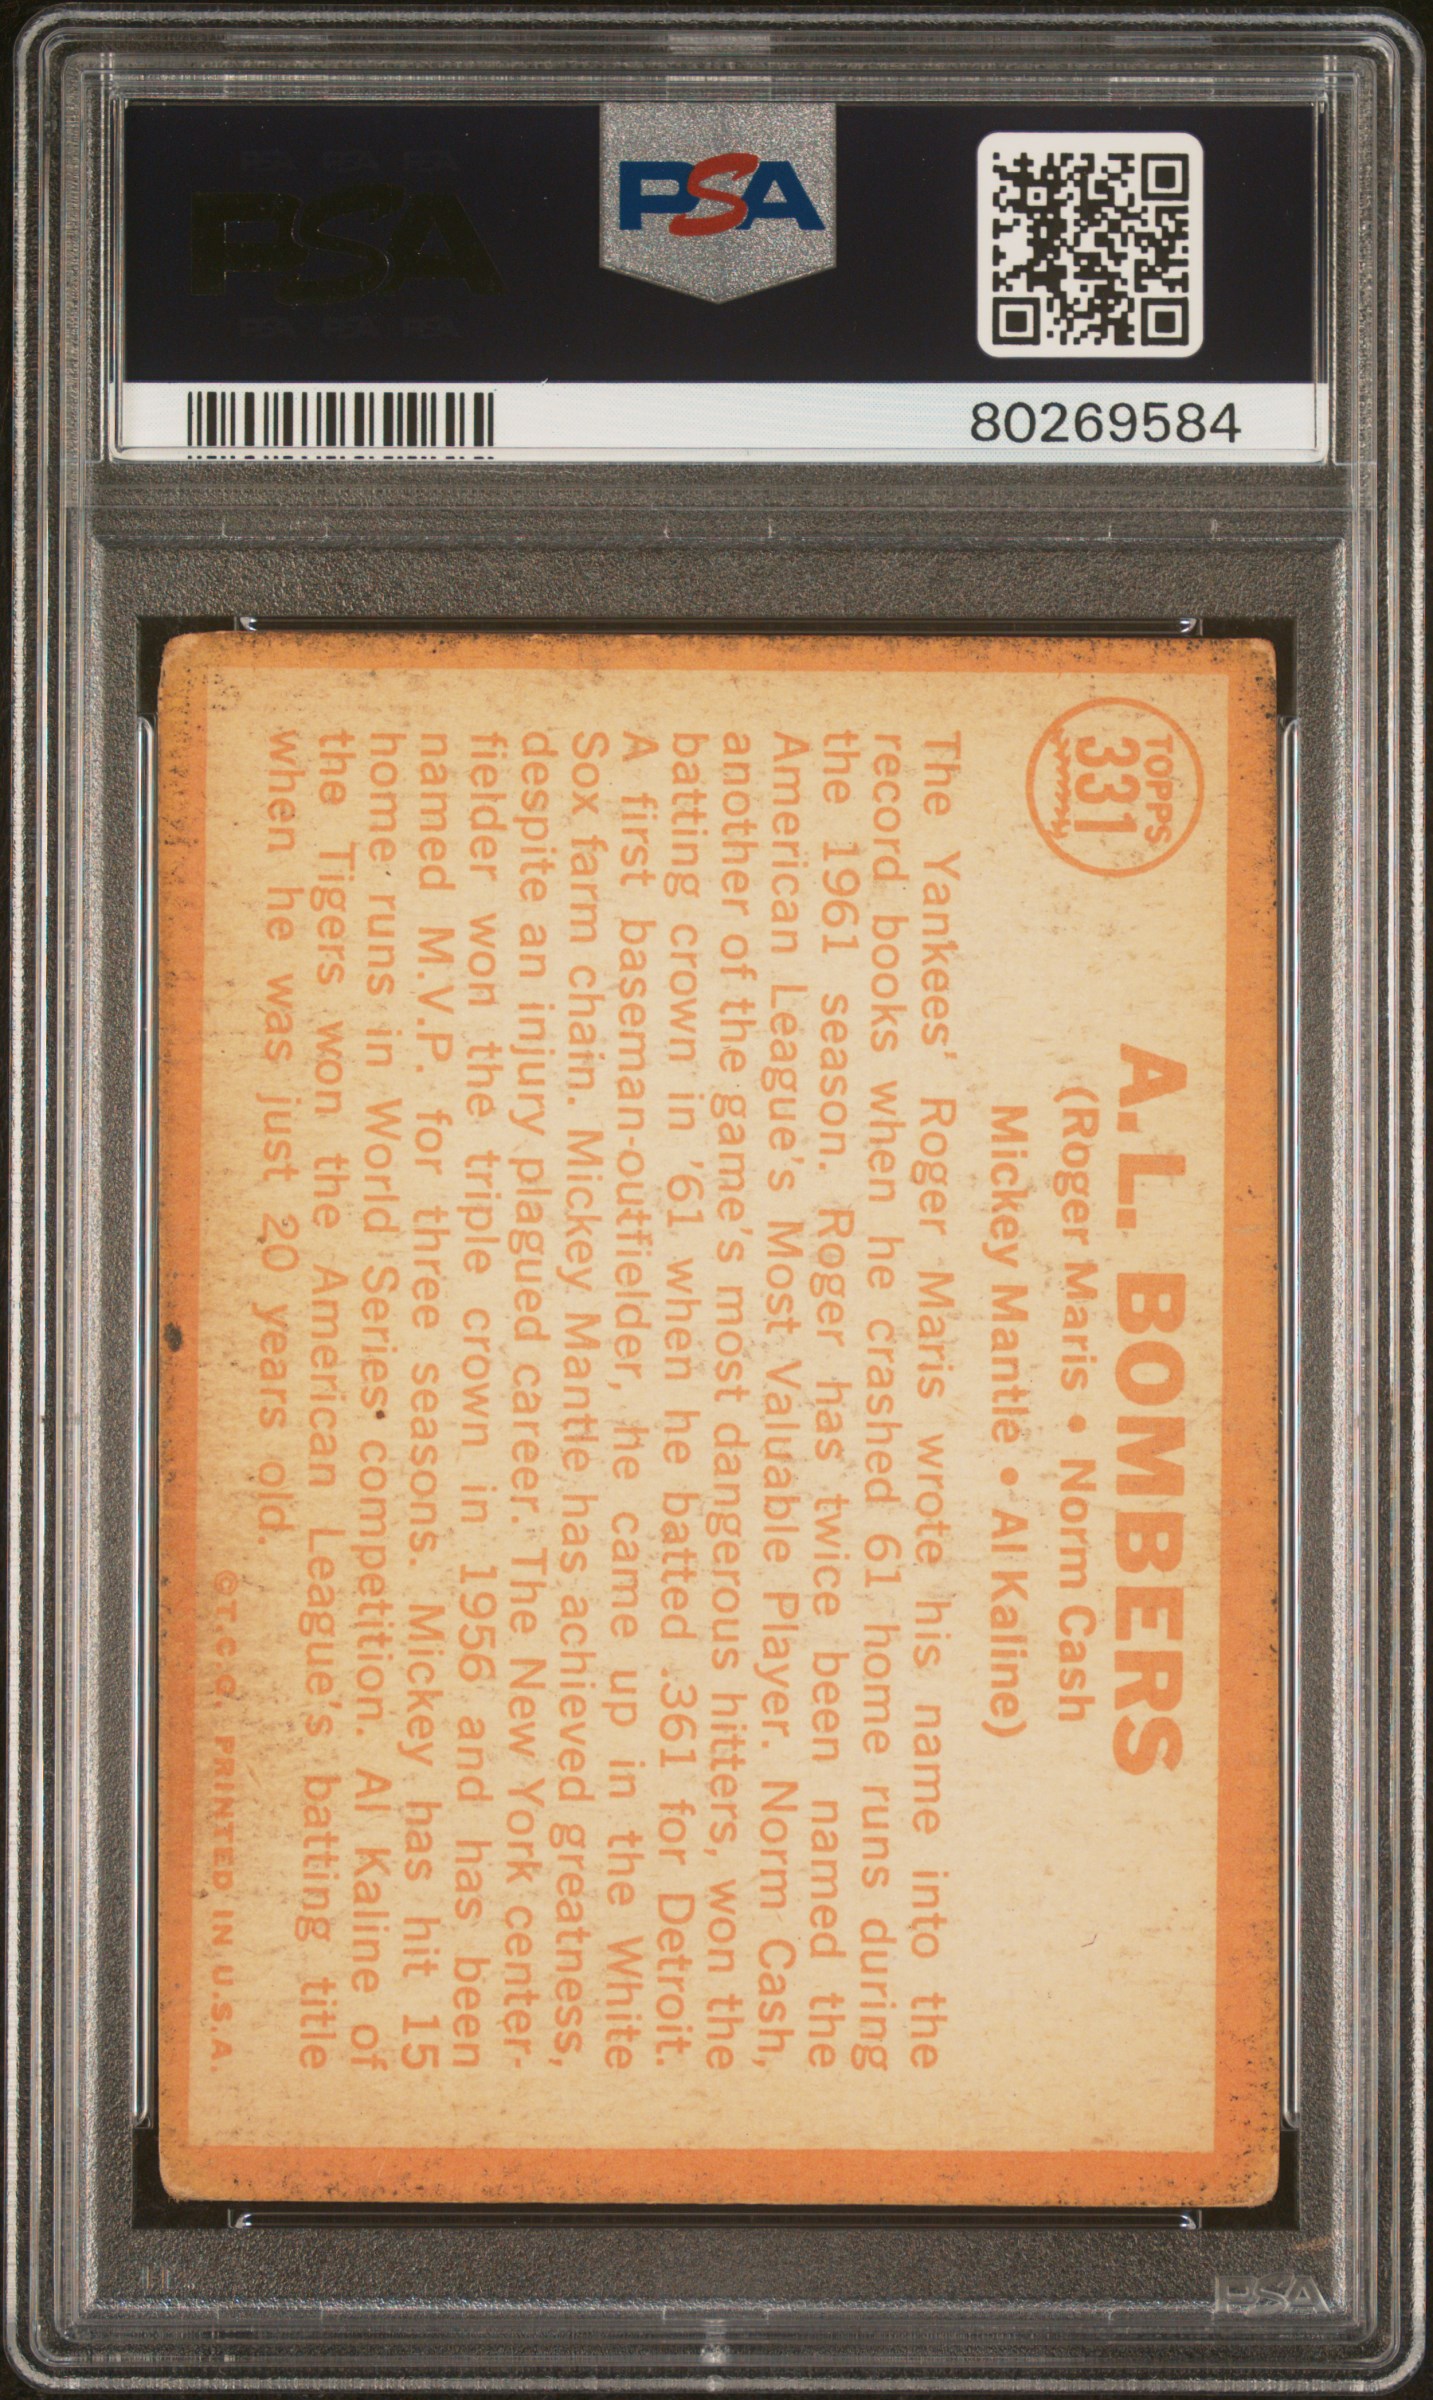 PSA
PSA
80269584
TOPPS
331
A.L. BOMBERS
(Roger Maris • Norm Cash
Mickey Mantle • Al Kaline)
The Yankees' Roger Maris wrote his name into the
record books when he crashed 61 home runs during
the 1961 season. Roger has twice been named the
American League's Most Valuable Player. Norm Cash,
another of the game's most dangerous hitters, won the
batting crown in '61 when he batted .361 for Detroit.
A first baseman-outfielder, he came up in the White
Sox farm chain. Mickey Mantle has achieved greatness,
despite an injury plagued career. The New York center-
fielder won the triple crown in 1956 and has been
named M.V.P. for three seasons. Mickey has hit 15
home runs in World Series competition. Al Kaline of
the Tigers won the American League's batting title
when he was just 20 years old.
©T.C.G. PRINTED IN U.S.A.
PSA